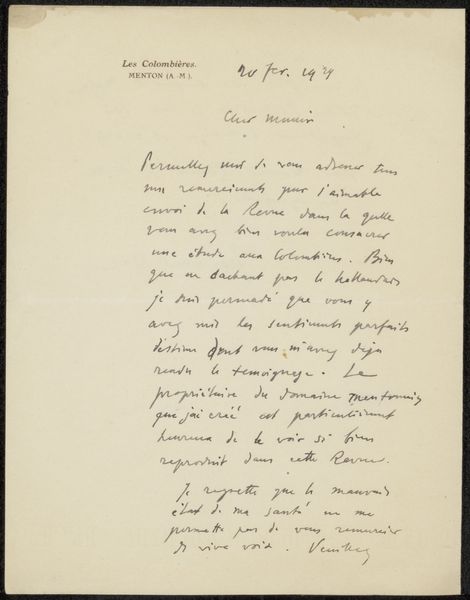 Les Colombières.
MENTON (A.-M.).
20 Fev. 1929
Cher Monsieur
Permettez moi de vous adresser tous
mes remerciements pour l'aimable
envoi de la Revue dans laquelle
vous avez bien voulu consacrer
une étude aux Colombières. Bien
que ne sachant pas le hollandais
je suis persuadé que vous y
avez mis les sentiments parfaits
d'estime dont vous m'avez deja
rendu le temoignage. Le
propriétaire du domaine mentonnais
que j'ai créé est particulièrement
heureux de le voir si bien
reproduit dans cette Revue.
Je regrette que le mauvais
état de ma santé ne me
permette pas de vous remercier
de vive voix. Veuillez